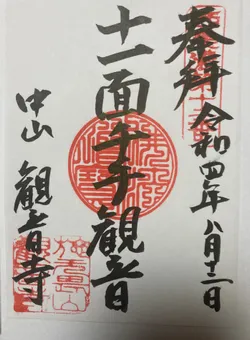 奉拝
令和四年八月十三日
十一面千手観音
中山 観音寺